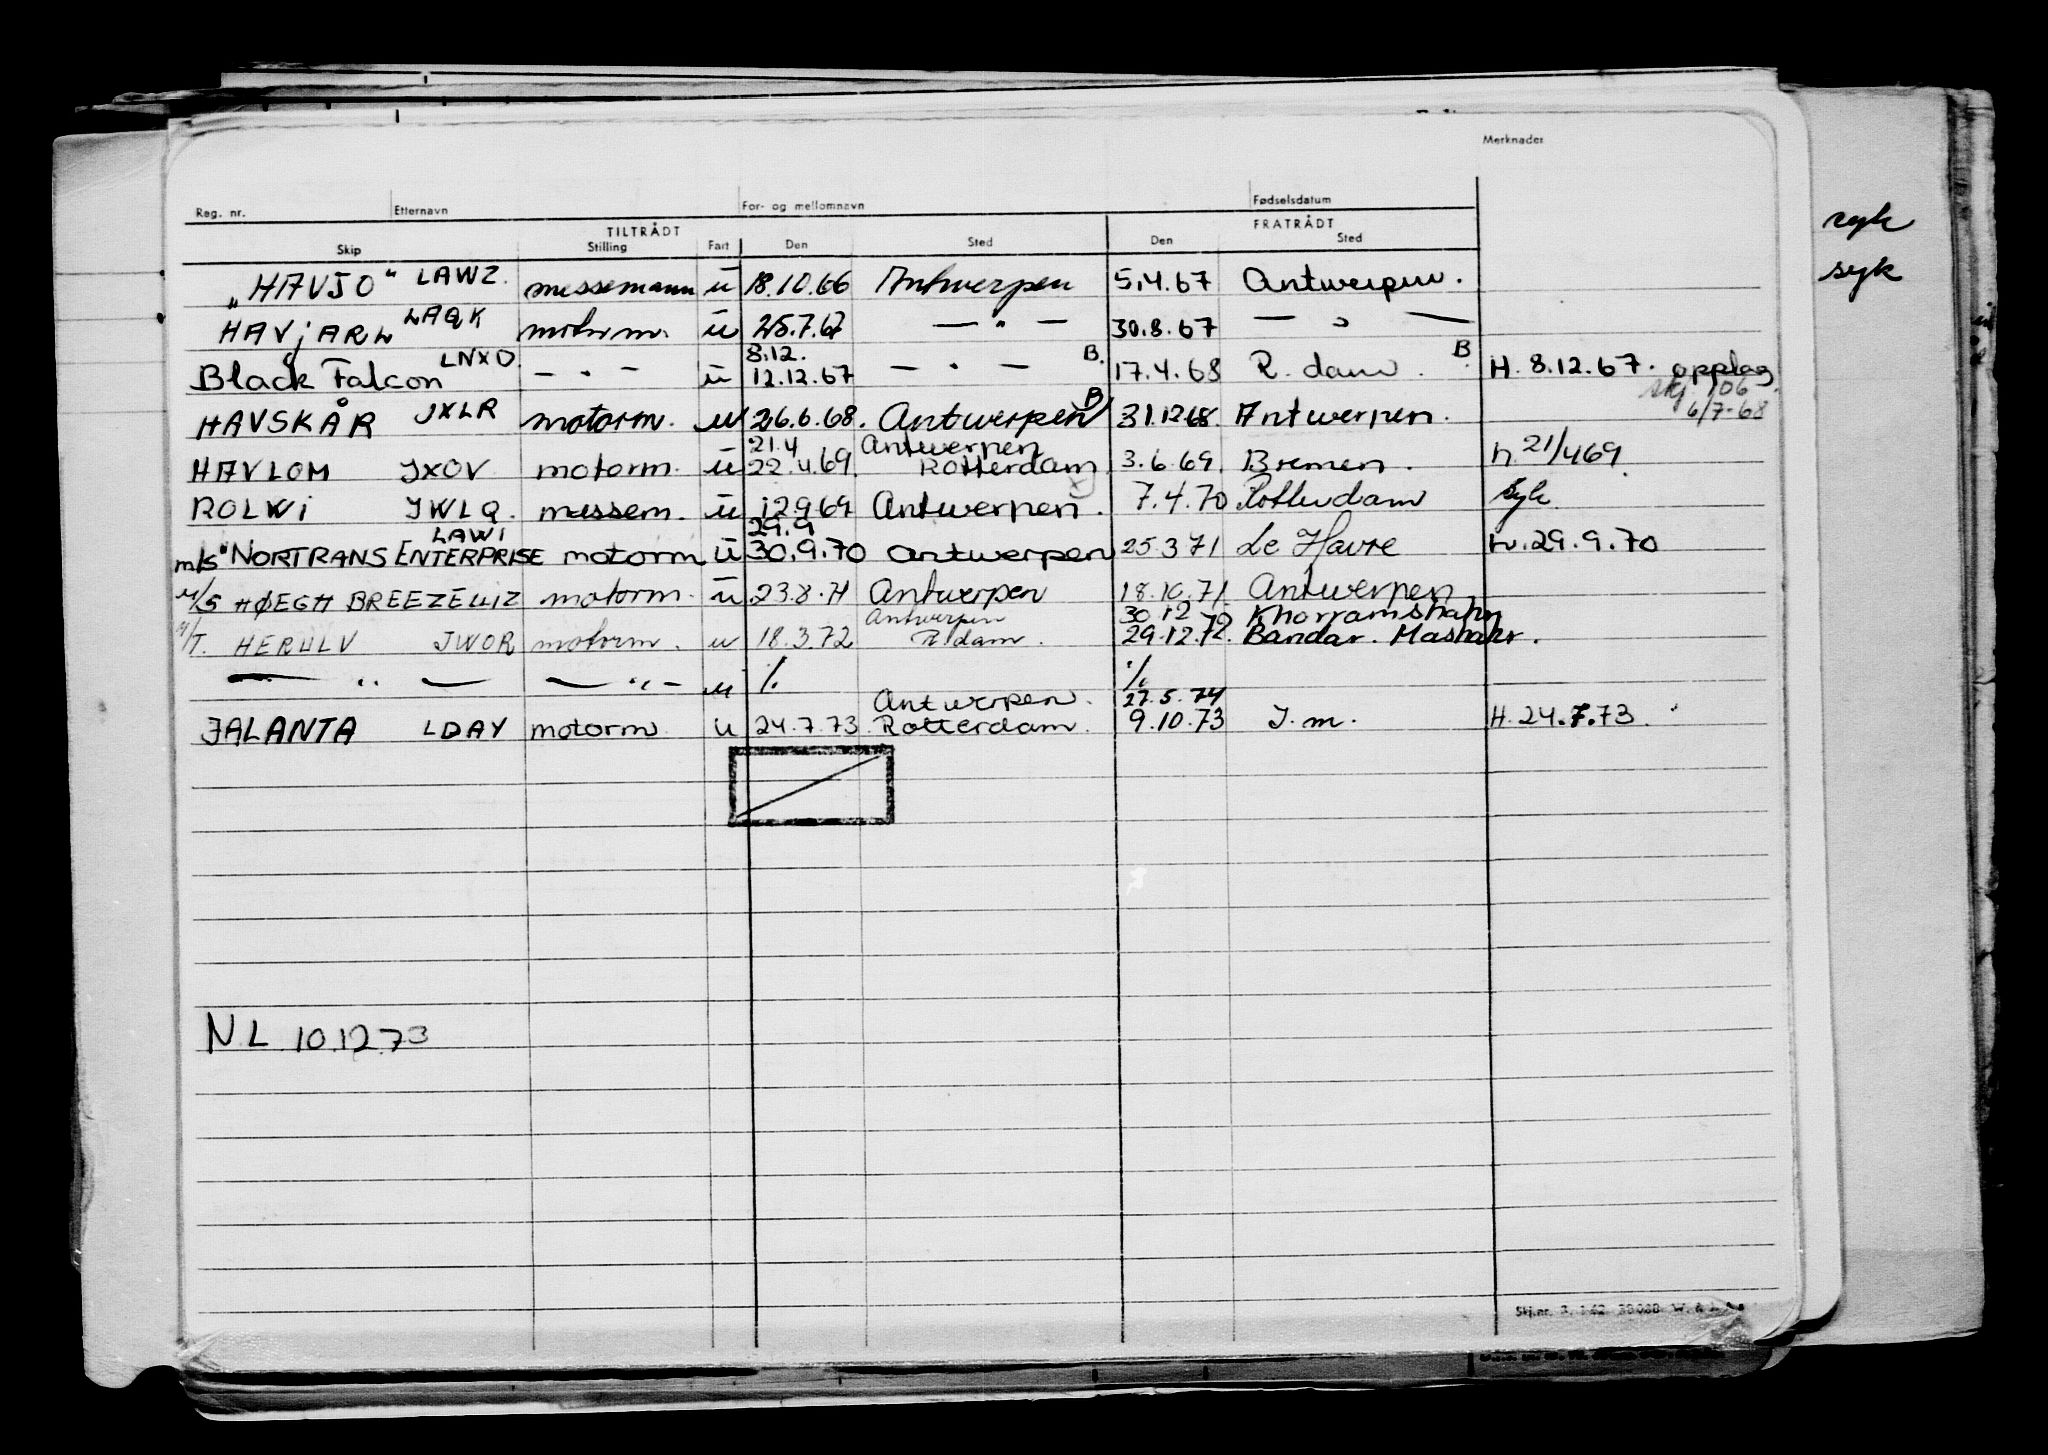 Merknader
Reg. nr. Etternavn For- og mellomnavn Fødselsdatum
TILTRÅDT FRATRÅDT
Skip Stilling Fart Den Sted Den Sted
syk
syk
„HAVJO" LAWZ. messemann ū 18.10.66 Antwerpen 5.4.67 Antwerpen.
HAVjARL LAQK motorm. ū 25.7.67 — " — 30.8.67 — " —
8.12.
Black Falcon LNXO. — " — ū 12.12.67 — " — B. 17.4.68 R. dam. B H. 8.12.67. opplag
skj 106
6/7-68
HAVSKÅR JXLR motorm. u 26.6.68. Antwerpen B 31.12 68. Antwerpen.
21.4 Antwerpen
HAVLOM JXOV motorm. ū 22.4.69. Rotterdam 3.6.69. Bremen. h. 21/469.
ROLWi JWLQ. messem. ū 12969 Antwerpen. 7.4.70 Rotterdam syk.
LAWI 29.9
m/s "NORTRANS ENTERPRISE motorm ū 30.9.70 antwerpen 25.3 71 Le Havre h. 29.9.70
M/S HØEGH BREEZE motorm. ū 23.8.71 Antwerpen 18.10.71 Antwerpen
Antwerpen 30.12 72 Khorramshahr
M/T. HERULV JWOR motorm. u 18.3.72 R dam. 29.12.72. Bandar. Mashahr.
— " — — " — u ./. ./.
Antwerpen. 27.5.74
JALANTA LDAY motorm u 24.7.73 Rotterdam. 9.10.73 J.m. H. 24.7.73.
N L. 10.12.73
Skj.nr.